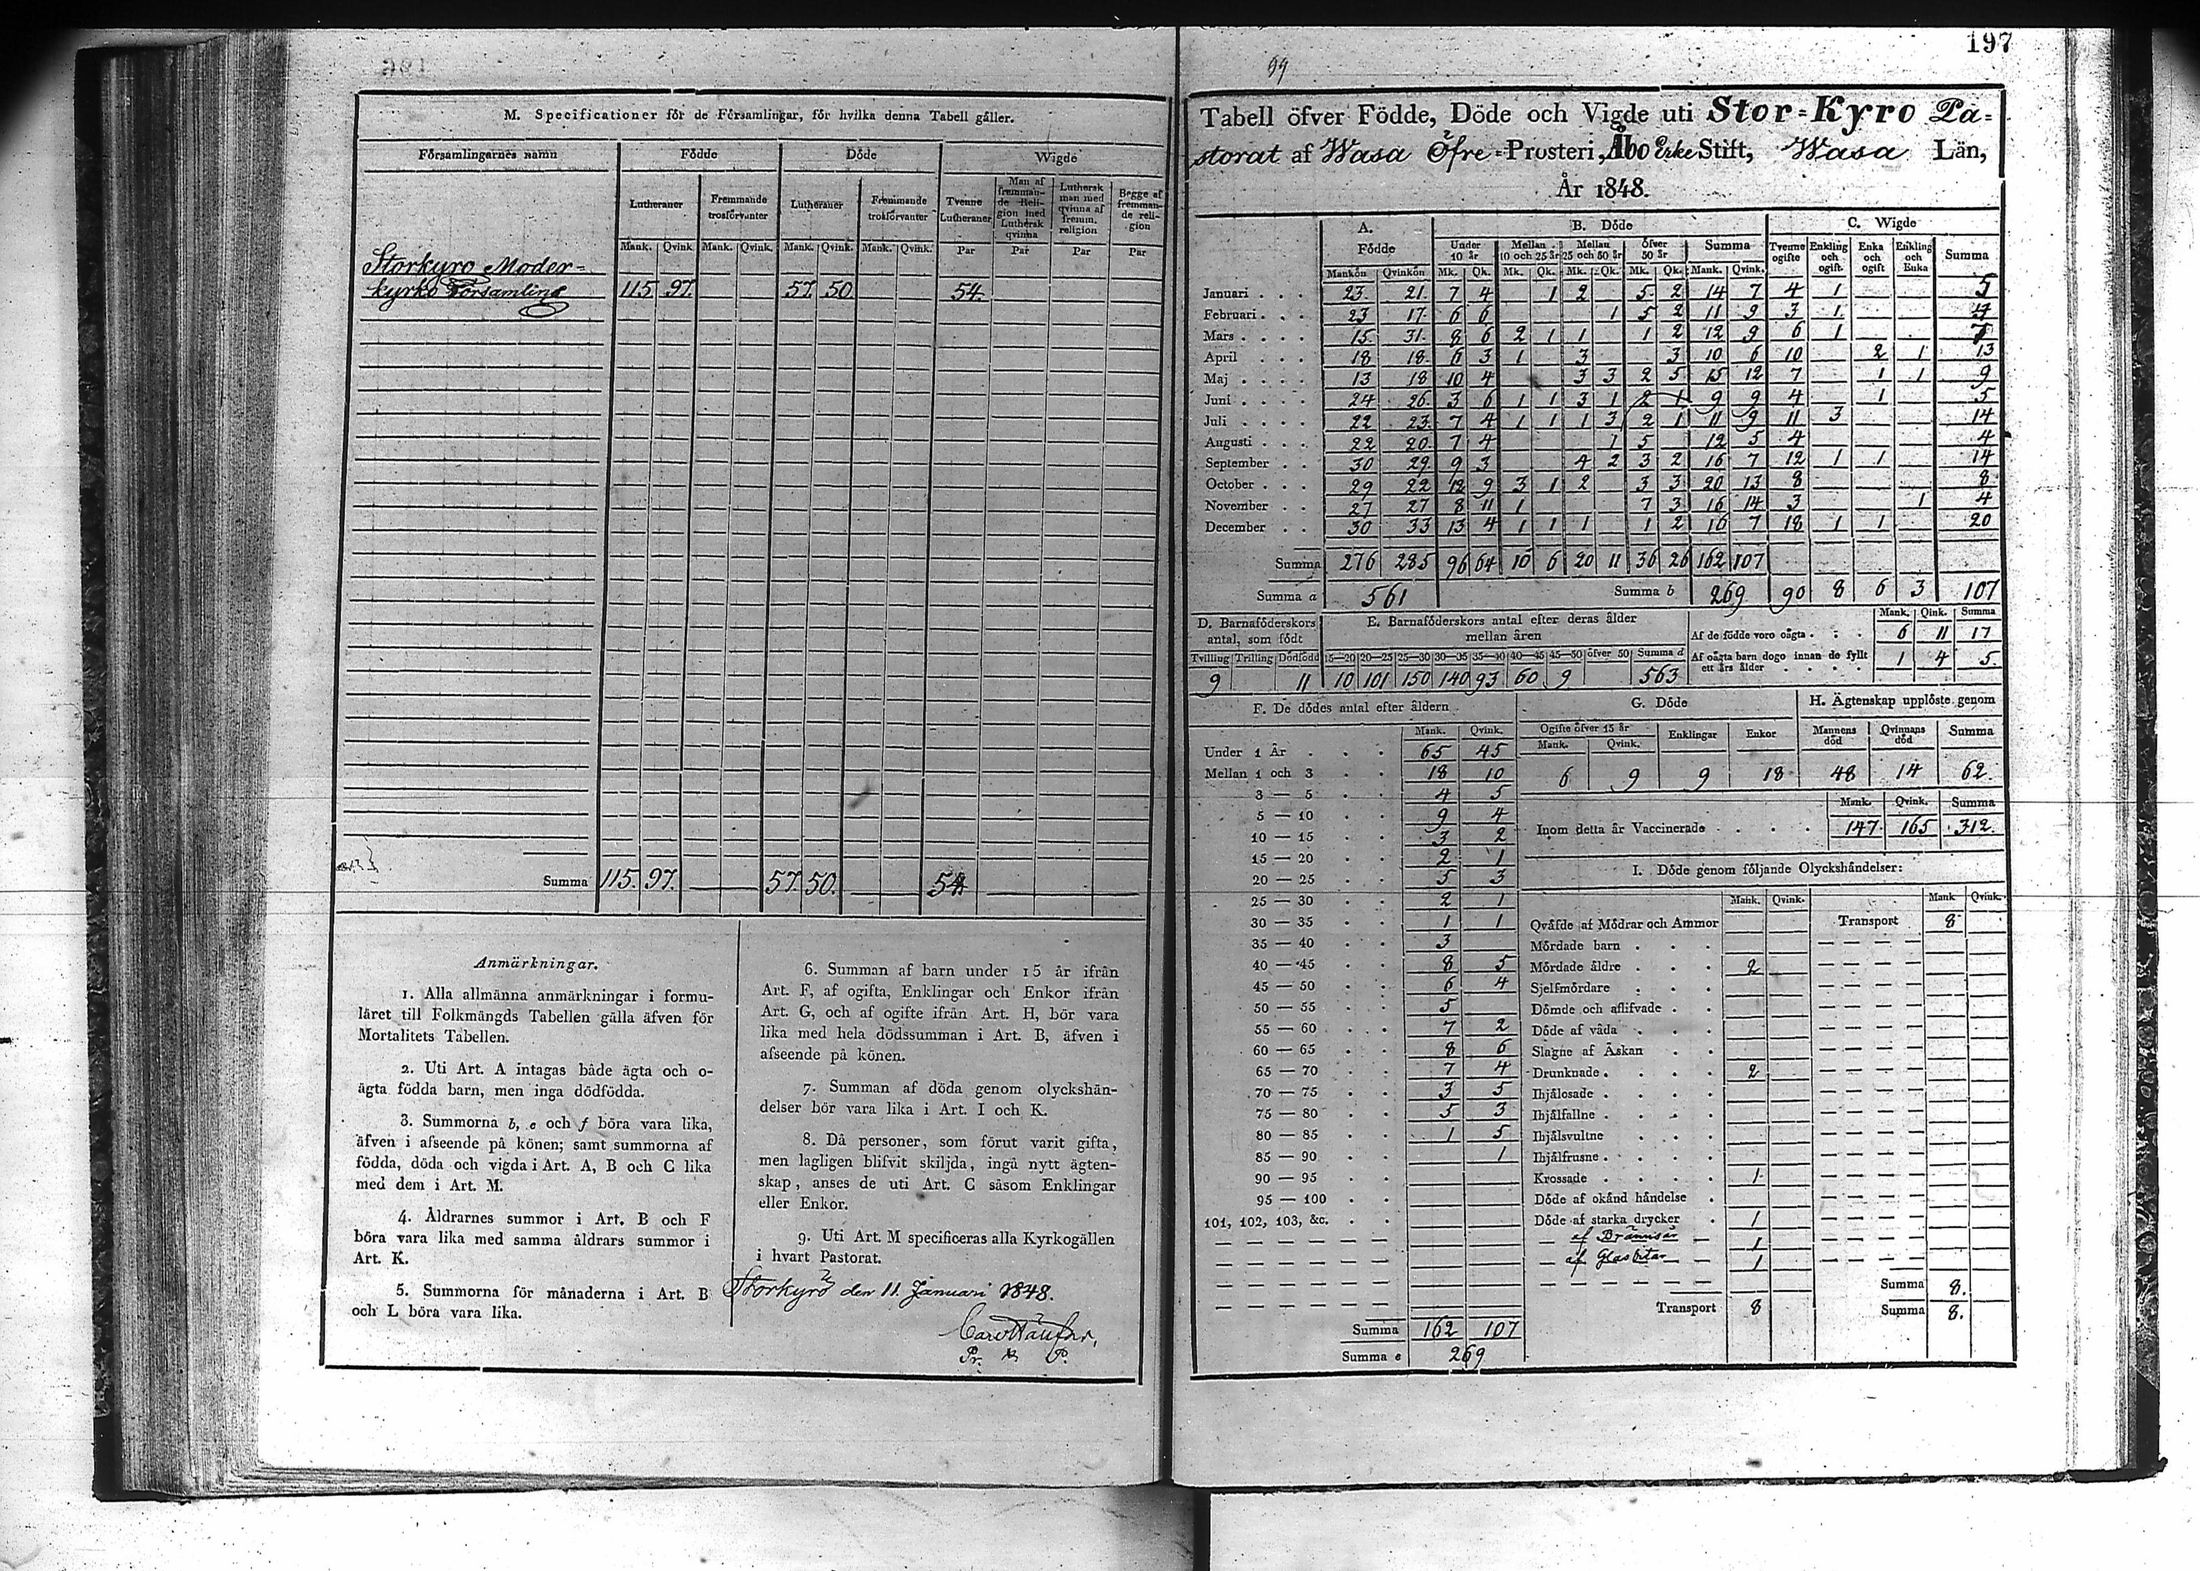 M. Specificationer för de Församlingar, för hvilka denna Tabell gäller.
Församlingarnes namn | Födde | Döde | Wigde
Lutheraner | Fremmande trosförvanter | Lutheraner | Fremmande trosförvanter | Tvenne Lutheraner | Man af fremmande Religion med Luthersk qvinna | Luthersk man med qvinna af fremm. religion | Begge af fremmande religion
Mank. Qvink. Mank. Qvink. Mank. Qvink. Mank. Qvink. Par Par Par Par
Storkyro Moder=
kyrko Församling 115 97. 57. 50. 54.
Summa 115. 97. 57. 50. 54.
Anmärkningar.
1. Alla allmänna anmärkningar i formu-
läret till Folkmängds Tabellen gälla äfven för
Mortalitets Tabellen.
2. Uti Art. A intagas både ägta och o-
ägta födda barn, men inga dödfödda.
3. Summorna b, e och f böra vara lika,
äfven i afseende på könen; samt summorna af
födda, döda och vigda i Art. A, B och C lika
med dem i Art. M.
4. Åldrarnes summor i Art. B och F
böra vara lika med samma åldrars summor i
Art. K.
5. Summorna för månaderna i Art. B
och L böra vara lika.
6. Summan af barn under 15 år ifrån
Art. F, af ogifta, Enklingar och Enkor ifrån
Art. G, och af ogifte ifrån Art. H, bör vara
lika med hela dödssumman i Art. B, äfven i
afseende på könen.
7. Summan af döda genom olyckshän-
delser bör vara lika i Art. I och K.
8. Då personer, som förut varit gifta,
men lagligen blifvit skiljda, ingå nytt ägten-
skap, anses de uti Art. C såsom Enklingar
eller Enkor.
9. Uti Art. M specificeras alla Kyrkogällen
i hvart Pastorat.
Storkyrö den 11 Januari 1848.
Pr. & P.
197
99
Tabell öfver Födde, Döde och Vigde uti Stor=Kyro Pa=
storat af Wasa Öfre=Prosteri, Åbo Erke Stift, Wasa Län,
År 1848.
A. Födde | B. Döde | C. Wigde
Under 10 år | Mellan 10 och 25 år | Mellan 25 och 50 år | Öfver 50 år | Summa | Tvenne ogifte | Enkling och ogift | Enka och ogift | Enkling och Enka | Summa
Mankön Qvinkön Mk. Qk. Mk. Qk. Mk. Qk. Mk. Qk. Mank. Qvink.
Januari 23. 21. 7 4 1 2 5 2 14 7 4 1 5
Februari 23 17. 6 6 1 5 2 11 9 3 1 4
Mars 15. 31. 8 6 2 1 1 1 2 12 9 6 1 7
April 18 18. 6 3 1 3 3 10 6 10 2 1 13
Maj 13 18 10 4 3 3 2 5 15 12 7 1 1 9
Juni 24 26. 3 6 1 1 3 1 2 1 9 9 4 1 5
Juli 22 23. 7 4 1 1 1 3 2 1 11 9 11 3 14
Augusti 22 20. 7 4 1 5 12 5 4 4
September 30 29 9 3 4 2 3 2 16 7 12 1 1 14
October 29 22 12 9 3 1 2 3 3 20 13 8 8
November 27 27 8 11 1 7 3 16 14 3 1 4
December 30 33 13 4 1 1 1 1 2 16 7 18 1 1 20
Summa 276 285 96 64 10 6 20 11 36 26 162 107
Summa a 561 Summa b 269 90 8 6 3 107
D. Barnaföderskors antal, som födt | E. Barnaföderskors antal efter deras ålder mellan åren
Tvilling Trilling Dödfödd 15—20 20—25 25—30 30—35 35—40 40—45 45—50 öfver 50 Summa d
9 11 10 101 150 140 93 60 9 563
Mank. Qink. Summa
Af de födde voro oägta 6 11 17
Af oägta barn dogo innan de fyllt
ett års ålder 1 4 5.
F. De dödes antal efter åldern
Mank. Qvink.
Under 1 År 65 45
Mellan 1 och 3 18 10
3 — 5 4 5
5 — 10 9 4
10 — 15 3 2
15 — 20 2 1
20 — 25 5 3
25 — 30 2 1
30 — 35 1 1
35 — 40 3
40 — 45 8 5
45 — 50 6 4
50 — 55 5
55 — 60 7 2
60 — 65 8 6
65 — 70 7 4
70 — 75 3 5
75 — 80 5 3
80 — 85 1 5
85 — 90 1
90 — 95
95 — 100
101, 102, 103, &c.
Summa 162 107
Summa e 269
G. Döde
Ogifte öfver 15 år | Enklingar | Enkor
Mank. Qvink.
6 9 9 18
H. Ägtenskap upplöste genom
Mannens död | Qvinnans död | Summa
48 14 62.
Mank. Qvink. Summa
Inom detta år Vaccinerade 147. 165 312.
I. Döde genom följande Olyckshändelser:
Mank. Qvink. Mank Qvink.
Qväfde af Mödrar och Ammor Transport 8
Mördade barn
Mördade äldre 2
Sjelfmördare
Dömde och aflifvade
Döde af våda
Slagne af Åskan
Drunknade 2
Ihjälosade
Ihjälfallne
Ihjälsvultne
Ihjälfrusne
Krossade 1
Döde af okänd händelse
Döde af starka drycker 1
af Brännsår 1
af Glasbitar 1
Summa 8.
Transport 8 Summa 8.